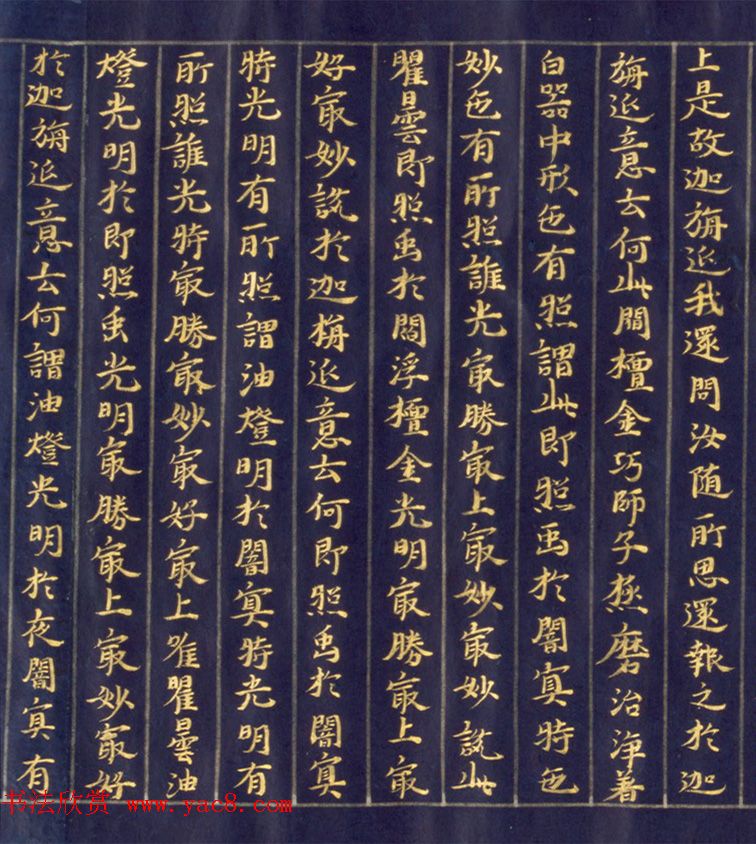 上是故迦旃延我還問汝随所思還報之於迦
旃延意云何此間檀金巧師子極磨治淨著
白器中形色有照謂此即照虫於闇冥時色
妙色有所照誰光最勝最上最妙最妙說此
瞿曇即照虫於閻浮檀金光明最勝最上最
好最妙說於迦栴延意云何即照虫於闇冥
時光明有所照謂油燈明於闇冥時光明有
所照誰光時最勝最妙最好最上唯瞿曇油
燈光明於即照虫光明最勝最上最妙最好
於迦旃延意云何謂油燈光明於夜闇冥有
书法欣赏 www.yac8.com